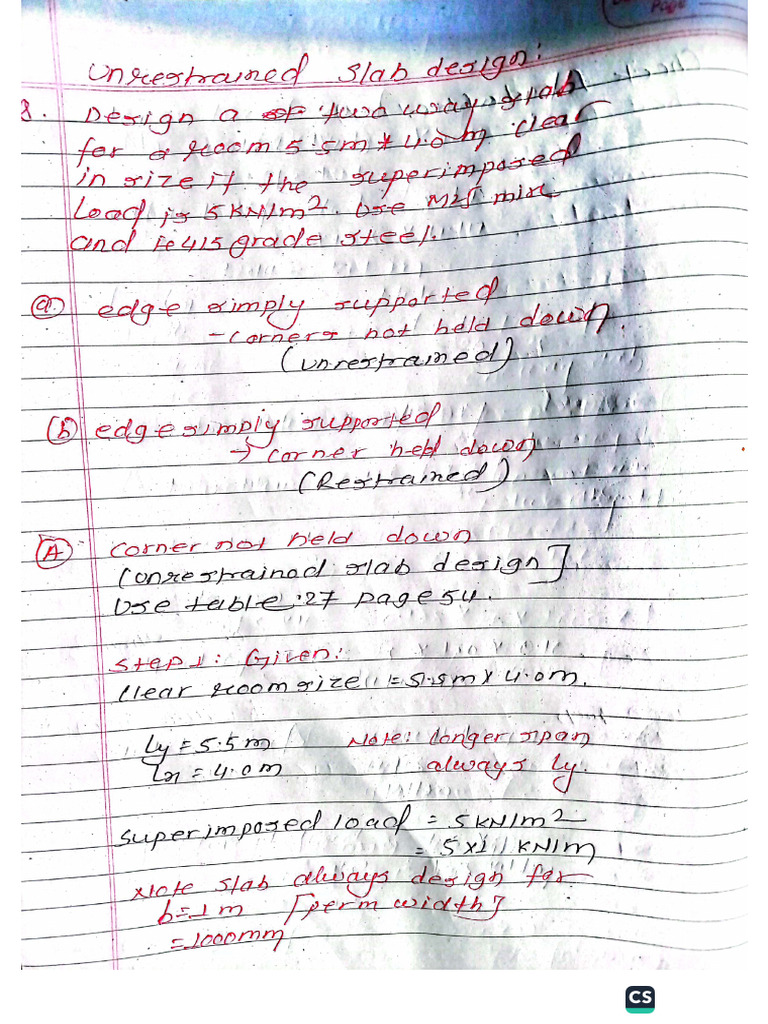 Page
Unrestrained slab design:
8. Design a two way slab
for a room 5.5m * 4.0m clear
in size if the superimposed
Load is 5KN/m². Use M25 mix
and fe415 grade steel.
(a) edge simply supported
- corners not held down.
(unrestrained)
(b) edge simply supported
→ corner held down
(Restrained)
(A) corner not held down
(unrestrained slab design]
Use table.27 page 54.
Step 1: Given:
Clear room size = 5.5m x 4.0m.
Ly = 5.5 m Note: longer span
Lx = 4.0 m always ly.
superimposed load = 5 KN/m²
= 5 x 1 KN/m
Note slab always design for
b = 1 m [per m width]
= 1000mm
CS